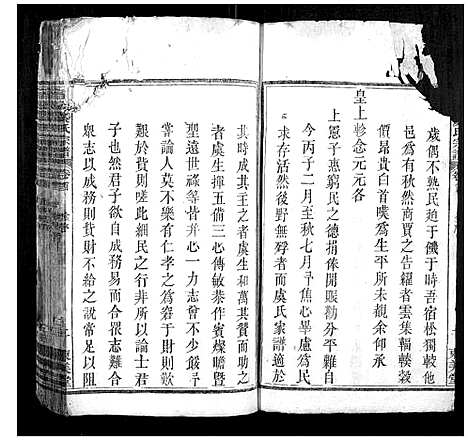 歲偶不熟民廹于饑于時吾宿松獨較他
邑為有秋然商賈之告糴者雲集輻輳穀
價昂貴白首嘆為生平所未覩余仰承
皇上軫念元元各
上恩子惠窮民之德捐俸開賑勸分平糶自
今丙子二月至秋七月㝷焦心畢慮凡
求存活然後野無殍者而虞氏家譜適於
其時成其王之者虞生和萬其贊而助之
者虞生揮五倘三心傳敏恭作賓燦瞻暨
聖遠世祿等皆并心一力志會不少餒㝷
嘗論人莫不樂有仁孝之為窘于財則歎
艱於貲則嗟此細民之行非所以論士君
子也然君子欲自成務易而合罷志難合
眾志以成務則貲財不給之說常足以阻
氏宗譜
卷首